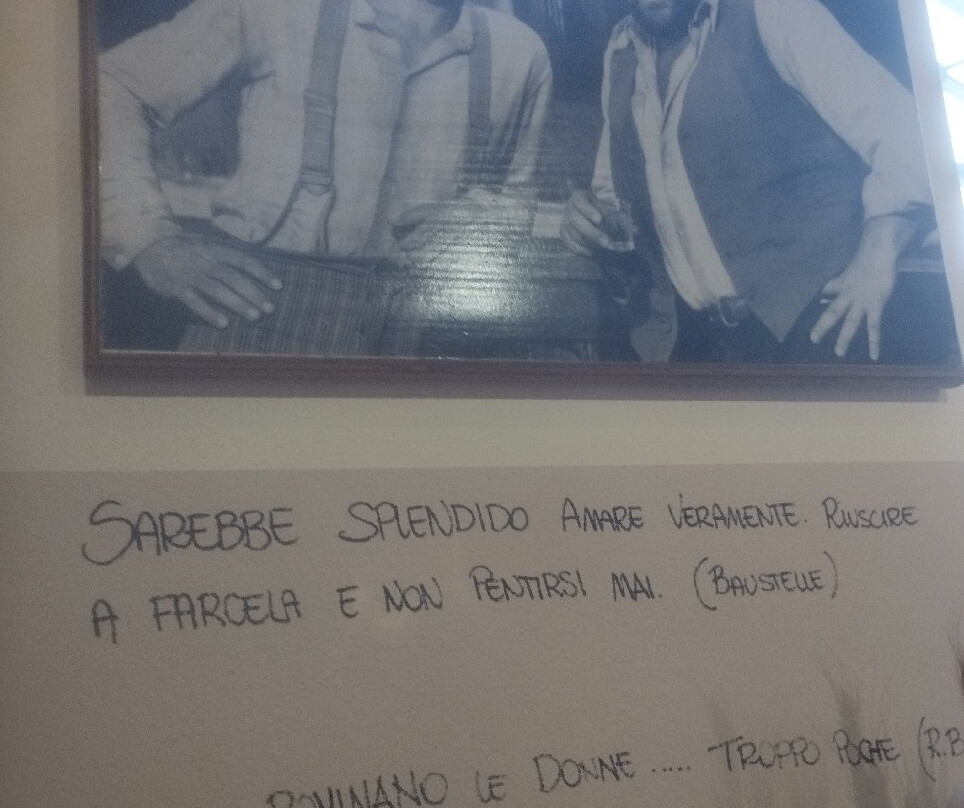 SAREBBE SPLENDIDO AMARE VERAMENTE. RIUSCIRE
A FARCELA E NON PENTIRSI MAI. (BAUSTELLE)
ROVINANO LE DONNE ..... TROPPO POCHE (R.B